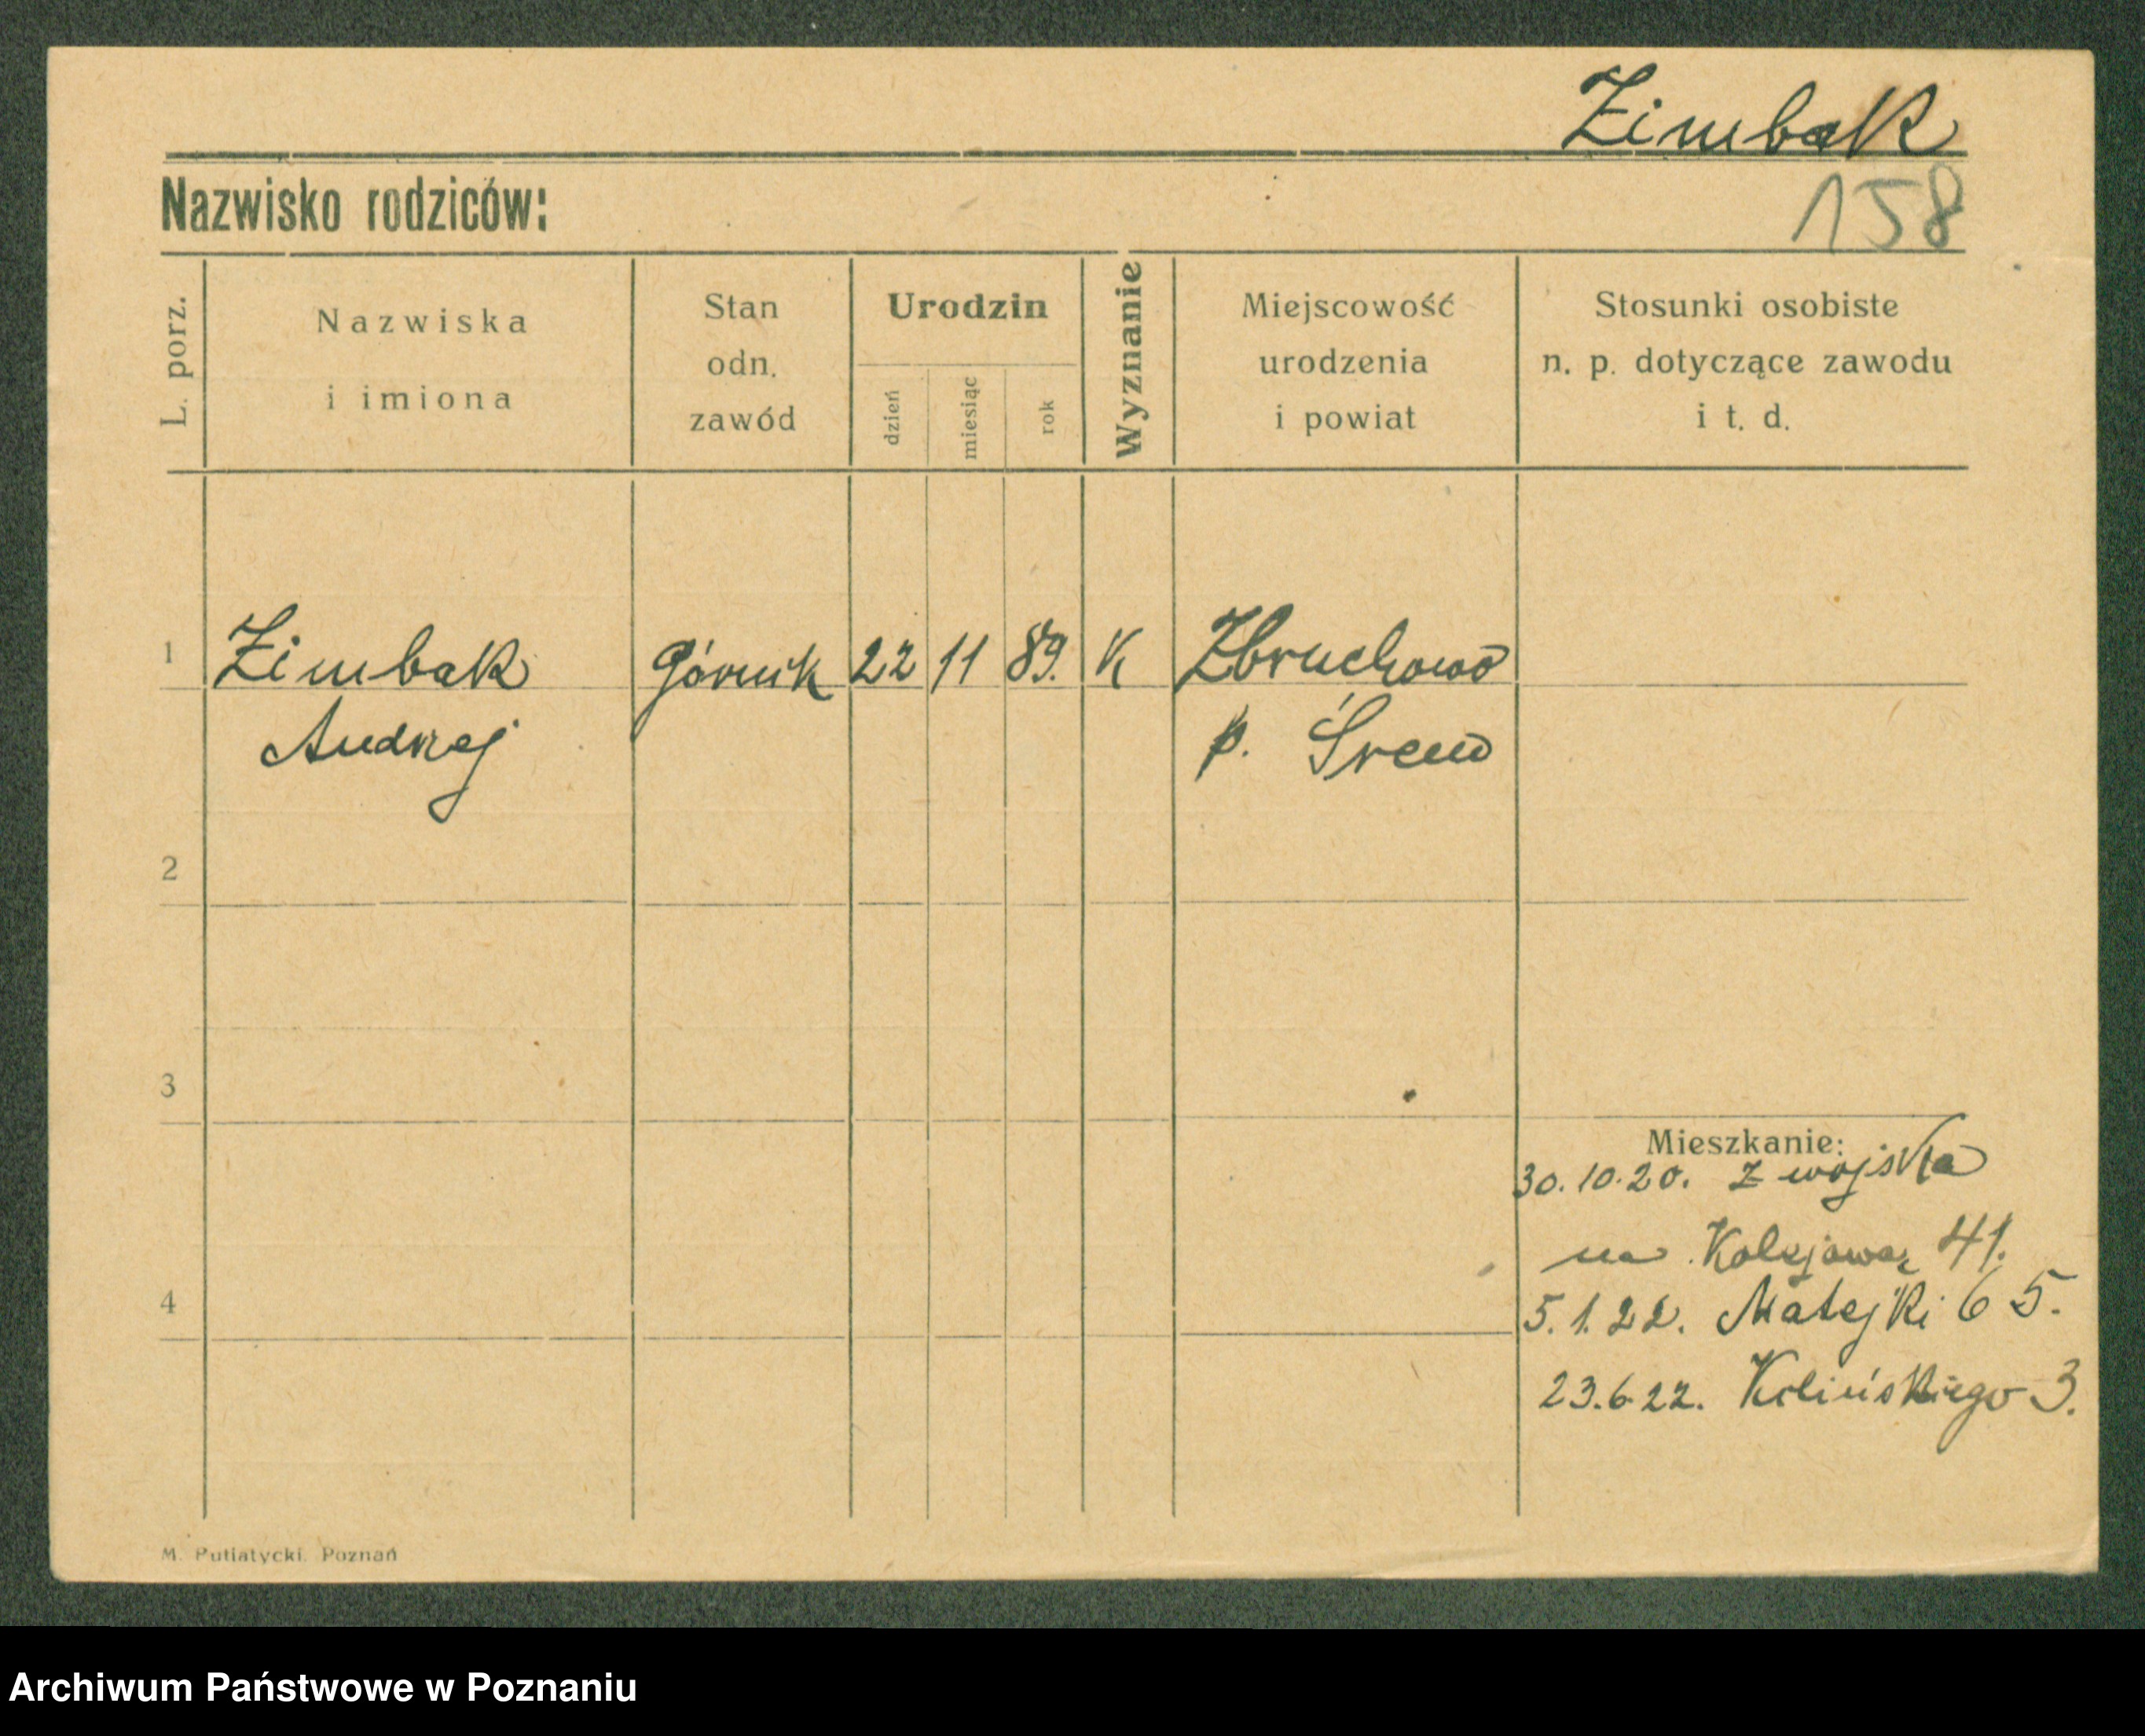 Zimbak
Nazwisko rodziców:
158
L. porz.
Nazwiska
i imiona
Stan
odn.
zawód
Urodzin
dzień
miesiąc
rok
Wyznanie
Miejscowość
urodzenia
i powiat
Stosunki osobiste
n. p. dotyczące zawodu
i t. d.
1 Zimbak Górnik 22 11 89. K Zbruchowo
Andrzej p. Śrem
2
3
Mieszkanie:
30.10.20. z wojska
na Kolejową 41.
4
5.1.22. Matejki 65.
23.6.22. Kilińskiego 3.
M. Putiatycki. Poznań
Archiwum Państwowe w Poznaniu